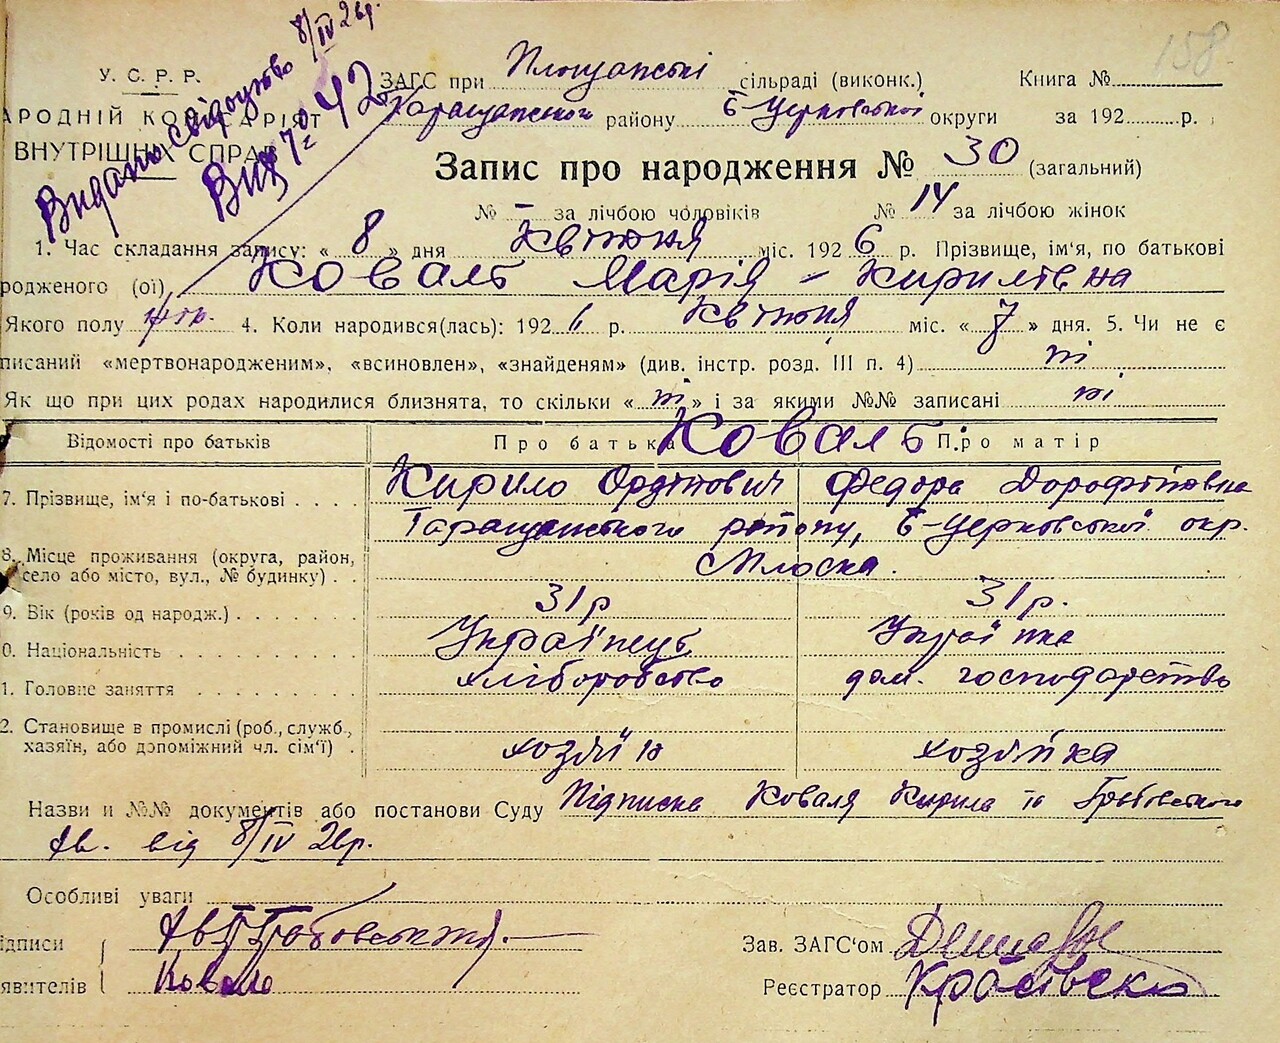 158
Видано свідоцтво 8/IV 26р.
Вип № 42
У. С. Р. Р.
АРОДНІЙ КОМ АРІЯТ
ВНУТРІШНХ СПРАВ
ЗАГС при сільраді (виконк.) Книга №
Таращанського району Б-Церковської округи за 192 р.
Запис про народження № 30 (загальний)
№ – за лічбою чоловіків № 14 за лічбою жінок
1. Час складання запису: « 8 » дня Квітня міс. 192 6 р. Прізвище, ім'я, по батькові
родженого (ої) Коваль Марія - Кирилівна
Якого полу жін. 4. Коли народився(лась): 192 6 р. Квітня міс. « 7 » дня. 5. Чи не є
писаний «мертвонародженим», «всиновлен», «знайденям» (див. інстр. розд. III п. 4) ні
Як що при цих родах народилися близнята, то скільки « ні » і за якими №№ записані ні
Відомості про батьків Про батька Коваль Про матір
7. Прізвище, ім'я і по-батькові Кирило Федора Дорофіївна
Таращанського району, Б-Церковської окр.
8. Місце проживання (округа, район,
село або місто, вул., № будинку) Плоска.
9. Вік (років од народж.) 31 р 31 р.
0. Національність Українець Українка
1. Головне заняття хліборобство дом. господарство
2. Становище в промислі (роб., служб.,
хазяїн, або допоміжний чл. сім'ї) хозяїн хозяйка
Назви и №№ документів або постанови Суду Підписка Коваля Кирила та Грабовського
Ав. від 8/IV 26р.
Особливі уваги
ідписи Ав Грабовський. Зав. ЗАГС'ом
явителів Коваль Реєстратор